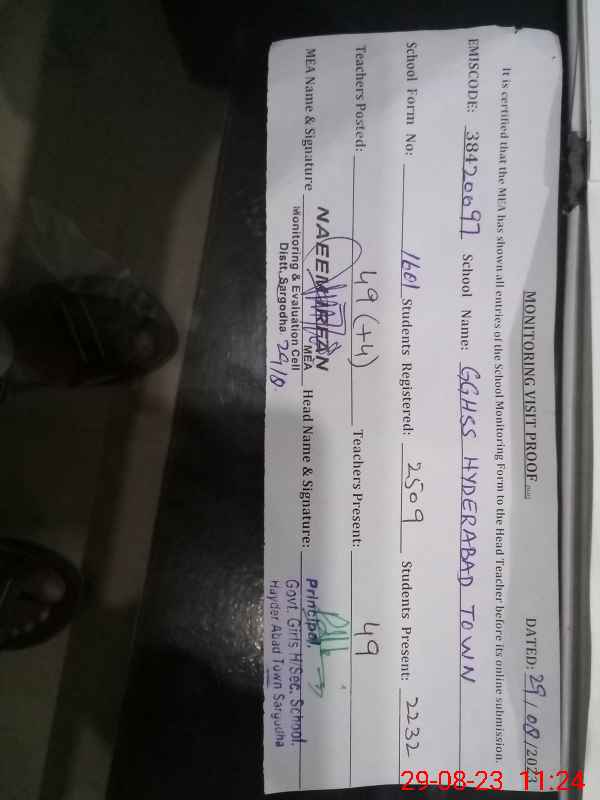 MONITORING VISIT PROOF DATED: 29/08/2023
It is certified that the MEA has shown all entries of the School Monitoring Form to the Head Teacher before its online submission.
EMISCODE: 38420097 School Name: GGHSS HYDERABAD TOWN
School Form No: 1601 Students Registered: 2509 Students Present: 2232
Teachers Posted: 49 (+4) Teachers Present: 49
MEA Name & Signature Head Name & Signature:
NAEEM IRFAN
MEA
Monitoring & Evaluation Cell
Distt. Sargodha 29/8
Principal,
Govt. Girls H/Sec. School.
Hayder Abad Town Sargodha
29-08-23 11:24